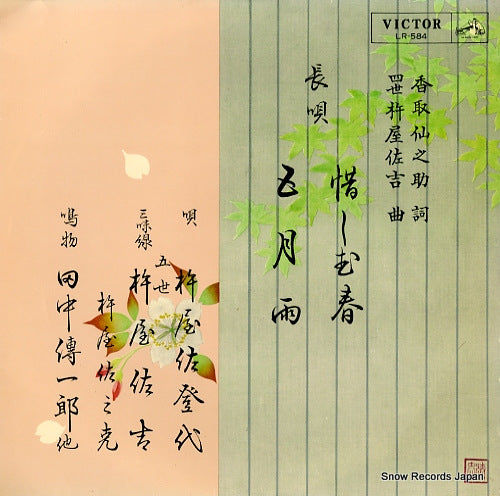 VICTOR
LR-584
香取仙之助 詞
四世杵屋佐吉 曲
長唄
惜しむ春
五月雨
唄 杵屋佐登代
三味線 五世 杵屋佐吉
杵屋佐之克
鳴物 田中傳一郎 他
Snow Records Japan